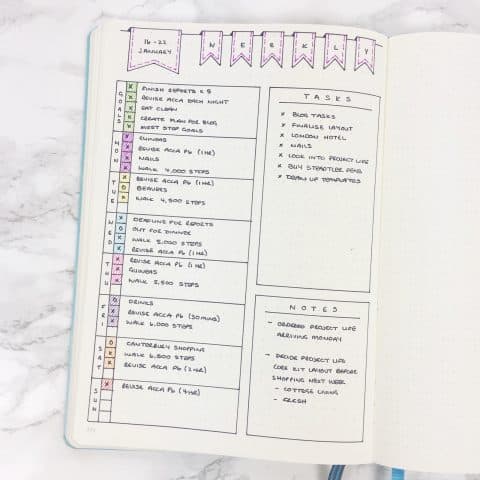 16 - 22
JANUARY
WEEKLY
GOALS
FINISH REPORTS x 3
REVISE ACCA EACH NIGHT
EAT CLEAN
CREATE PLAN FOR BLOG
MEET STEP GOALS
MON
GUINEAS
REVISE ACCA P6 (1HR)
NAILS
WALK 4,000 STEPS
TUE
REVISE ACCA P6 (1HR)
WALK 4,500 STEPS
WED
DEADLINE FOR REPORTS
OUT FOR DINNER
WALK 5,000 STEPS
REVISE ACCA P6 (1HR)
THU
REVISE ACCA P6 (1HR)
GUINEAS
WALK 5,500 STEPS
FRI
DRINKS
REVISE ACCA P6 (30MINS)
WALK 6,000 STEPS
SAT
CANTERBURY SHOPPING
WALK 6,500 STEPS
REVISE ACCA P6 (2HR)
SUN
REVISE ACCA P6 (4HR)
TASKS
x BLOG TASKS
x FINALISE LAYOUT
x LONDON HOTEL
x NAILS
x LOOK INTO PROJECT LIFE
x BUY STAEDTLER PENS
x DRAW UP TEMPLATES
NOTES
- ORDERED PROJECT LIFE
ARRIVING MONDAY
- DECIDE PROJECT LIFE
CORE KIT LAYOUT BEFORE
SHOPPING NEXT WEEK
- COTTAGE LIVING
- FRESH